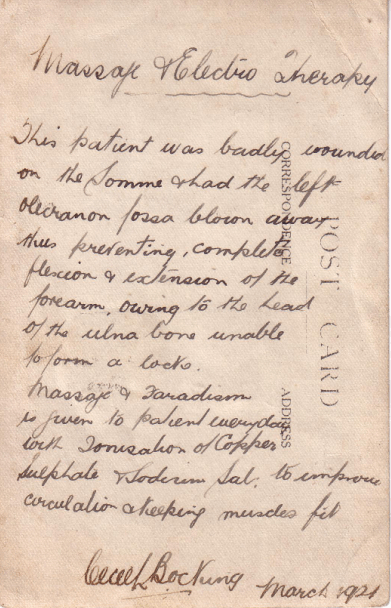 Massage & Electro Therapy
This patient was badly wounded
on the Somme & had the left
olecranon fossa blown away
thus preventing, complete
flexion & extension of the
forearm, owing to the head
of the ulna bone unable
to form a lock.
Massage & Faradism
is given to patient everyday
with Ionisation of Copper
Sulphate & Sodium Sal. to improve
circulation & keeping muscles fit
Cecil L Bocking
March 1921
POST CARD
CORRESPONDENCE
ADDRESS